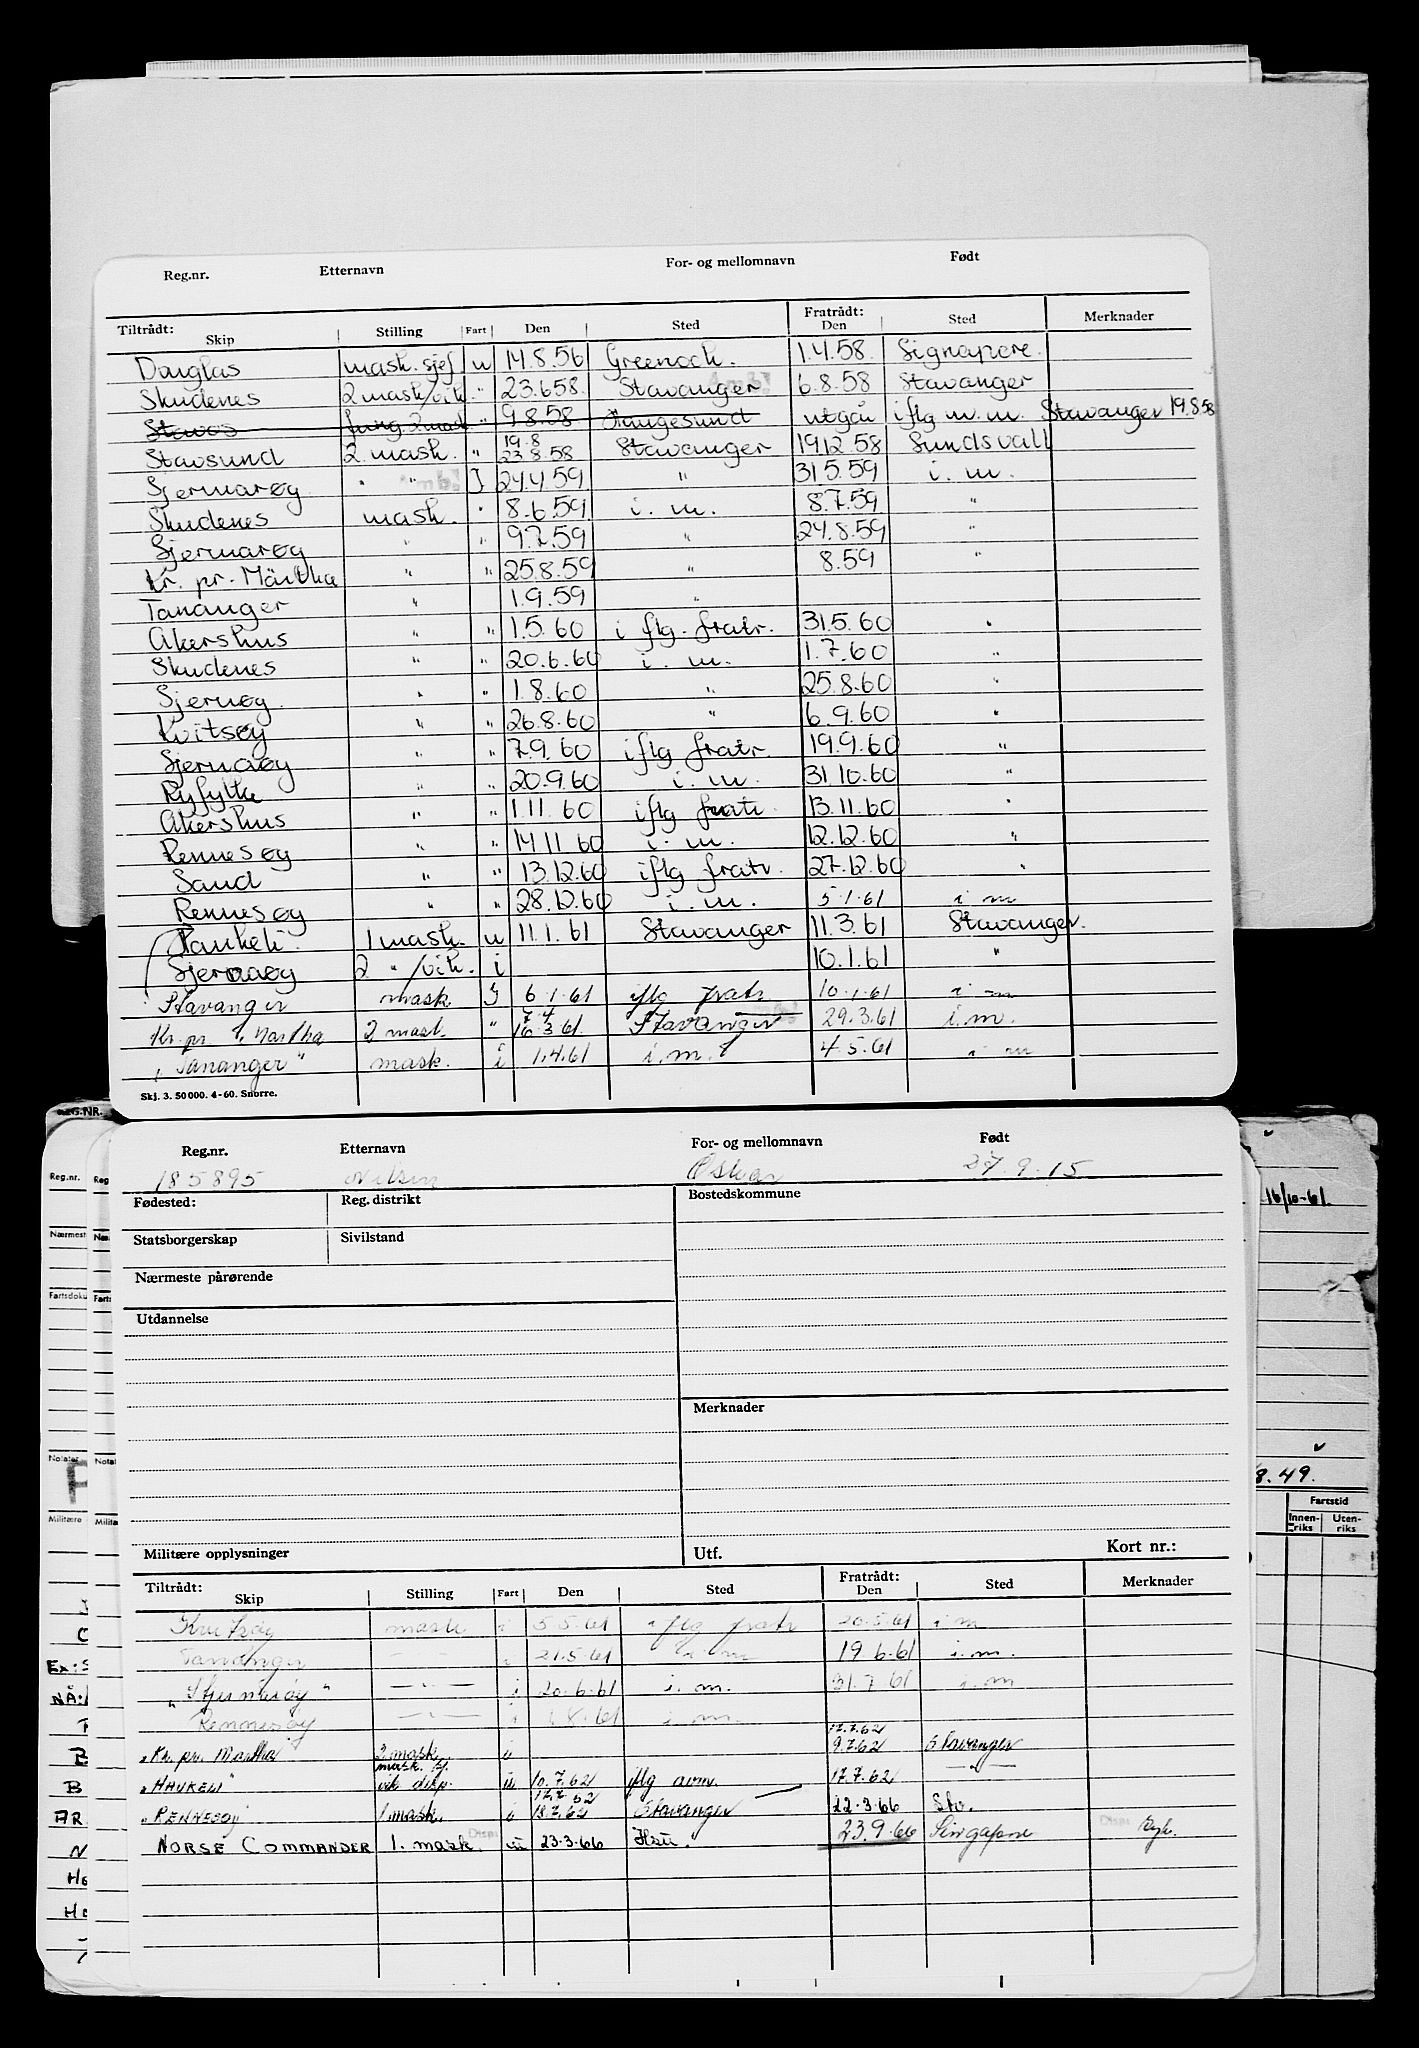 Reg.nr. Etternavn For- og mellomnavn Født
Tiltrådt: Skip Stilling Fart Den Sted Fratrådt: Den Sted Merknader
Douglas mask. sjef u 14.8.56 Greenock. 1.4.58. Signapore.
Skudenes 2 mask/vik. " 23.658. Stavanger 6.8.58 Stavanger
Stavos fung 2 mask " 9.8.58 Haugesund utgår iflg m.m. Stavanger 19.8.58
Stavsund 2. mask. " 19.8 23.8.58 Stavanger 19.12.58 Sundsvall
Sjernarøy " " J 24.4.59 " 31.5.59 i. m.
Skudenes mask. " 8.6.59 i. m. 8.7.59 "
Sjernarøy " " 9.7.59 " 24.8.59 "
Kr. pr. Märtha " " 25.8.59 " 8.59 "
Tananger " 1.9.59 "
Akershus " " 1.5.60 i flg. fratr. 31.5.60 "
Skudenes " " 20.6.60 i. m. 1.7.60 "
Sjernøy " " 1.8.60 " 25.8.60 "
Kvitsøy " " 26.8.60 " 6.9.60 "
Sjernaøy " " 7.9.60 iflg fratr. 19.9.60 "
Ryfylke " " 20.9.60 i. m. 31.10.60 "
Akershus " " 1.11.60 iflg fratr. 13.11.60 "
Rennesøy " " 14.11.60 i. m. 12.12.60 "
Sand " " 13.12.60 iflg fratr. 27.12.60 "
Rennesøy " " 28.12.60 i. m. 5.1.61 i m
Haukeli. 1 mask. u 11.1.61 Stavanger 11.3.61 Stavanger.
Sjernaøy 2 " /vik. i 10.1.61 "
Stavanger mask J 6.1.61 iflg fratr 10.1.61 i m
Kr. pr. Märtha 2 mask. " 7.4 16.3.61 Stavanger 29.3.61 i.m.
"Tananger" mask. i 1.4.61 i.m. 4.5.61 i m
Skj. 3. 50000. 4-60. Snorre.
Reg.nr. Etternavn For- og mellomnavn Født
185895 Nilsen Oskar 27.9.15
Fødested: Reg. distrikt Bostedskommune
Statsborgerskap Sivilstand
Nærmeste pårørende
Utdannelse
Merknader
Militære opplysninger Utf. Kort nr.:
Tiltrådt: Skip Stilling Fart Den Sted Fratrådt: Den Sted Merknader
Kvitsøy mask i 5.5.61 iflg fratr 20.5.61 i m
Tananger - " - i 21.5.61 i m 19.6.61 i.m.
"Stjernarøy" - " - i 20.6.61 i.m. 31.7.61 i.m
Rennesøy - " - i 1.8.61 i m.
"Kr. pr. Märtha" 2 mask i 17.7.62 9.7.62 Stavanger
"HAUKELI" mask. vik disp. u 10.7.62 iflg avm. 17.7.62 - " -
"RENNESØY" 1 mask. i 17.7.62 18.7.62 Stavanger 22-3-66 Stv.
NORSE COMMANDER 1. mask. u 23.3.66 23.9.66 Singapore
REG.NR.
Reg.nr.
Nærmest
Fartsdoku
Notater
Militære
16/10-61.
8.49.
Fartstid
Innen-riks Uten-riks